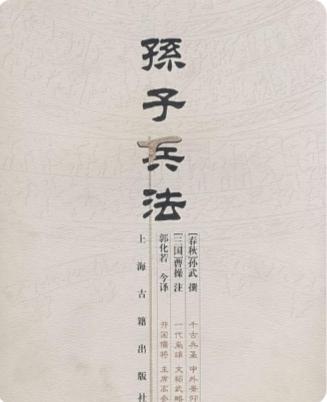 孫子兵法
[春秋]孫武 撰
[三国]曹操 注
郭化若 今译
千古兵圣 中外景仰
一代枭雄 文韬武略
开国儒将
上海古籍出版社